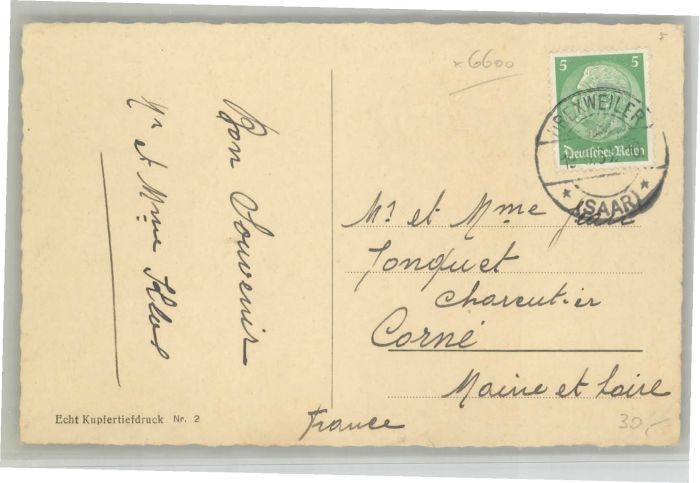 Bon Souvenir
Mr et Mme Klos
Echt Kupfertiefdruck Nr. 2
x6600
5 5
Deutsches Reich
UREXWEILER
(SAAR)
Mr et Mme Jean
Jonquet
Charcutier
Corné
Maine et Loire
France
30,-